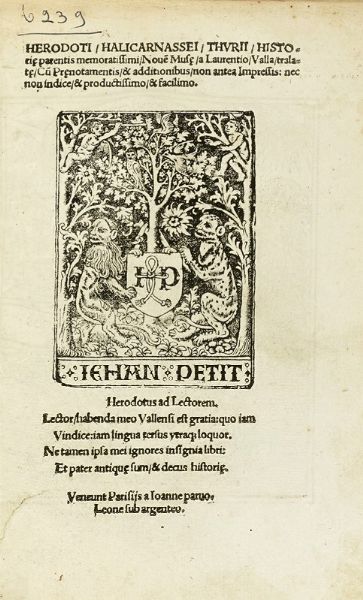 6239
HERODOTI / HALICARNASSEI / THVRII / HISTO-
rię parentis memoratissimi / Nouē Musę / a Laurentio / Valla / trala-
tę / Cū Pręnotamentis / & additionibus / non antea Impressis: nec
non indice / & productissimo / & facilimo.
HP
IEHAN PETIT
Herodotus ad Lectorem.
Lector / habenda meo Vallensi est gratia: quo iam
Vindice: iam lingua tersus vtraq; loquor.
Ne tamen ipsa mei ignores insignia libri:
Et pater antiquę sum / & decus historię.
Veneunt Parisijs a Ioanne paruo.
Leone sub argenteo.